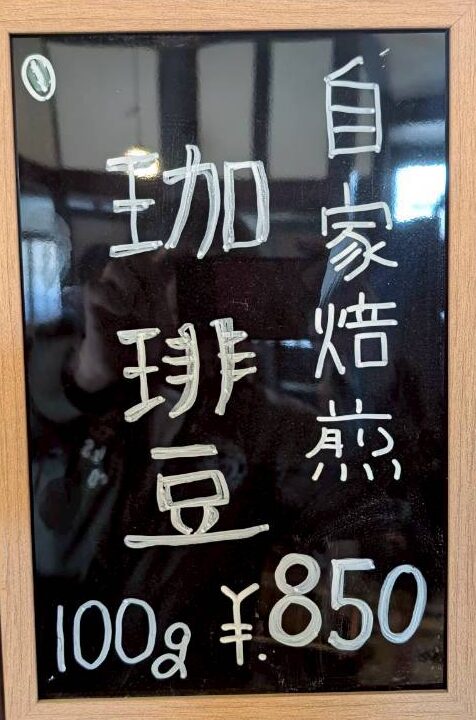 自家焙煎
珈琲豆
100g ¥.850